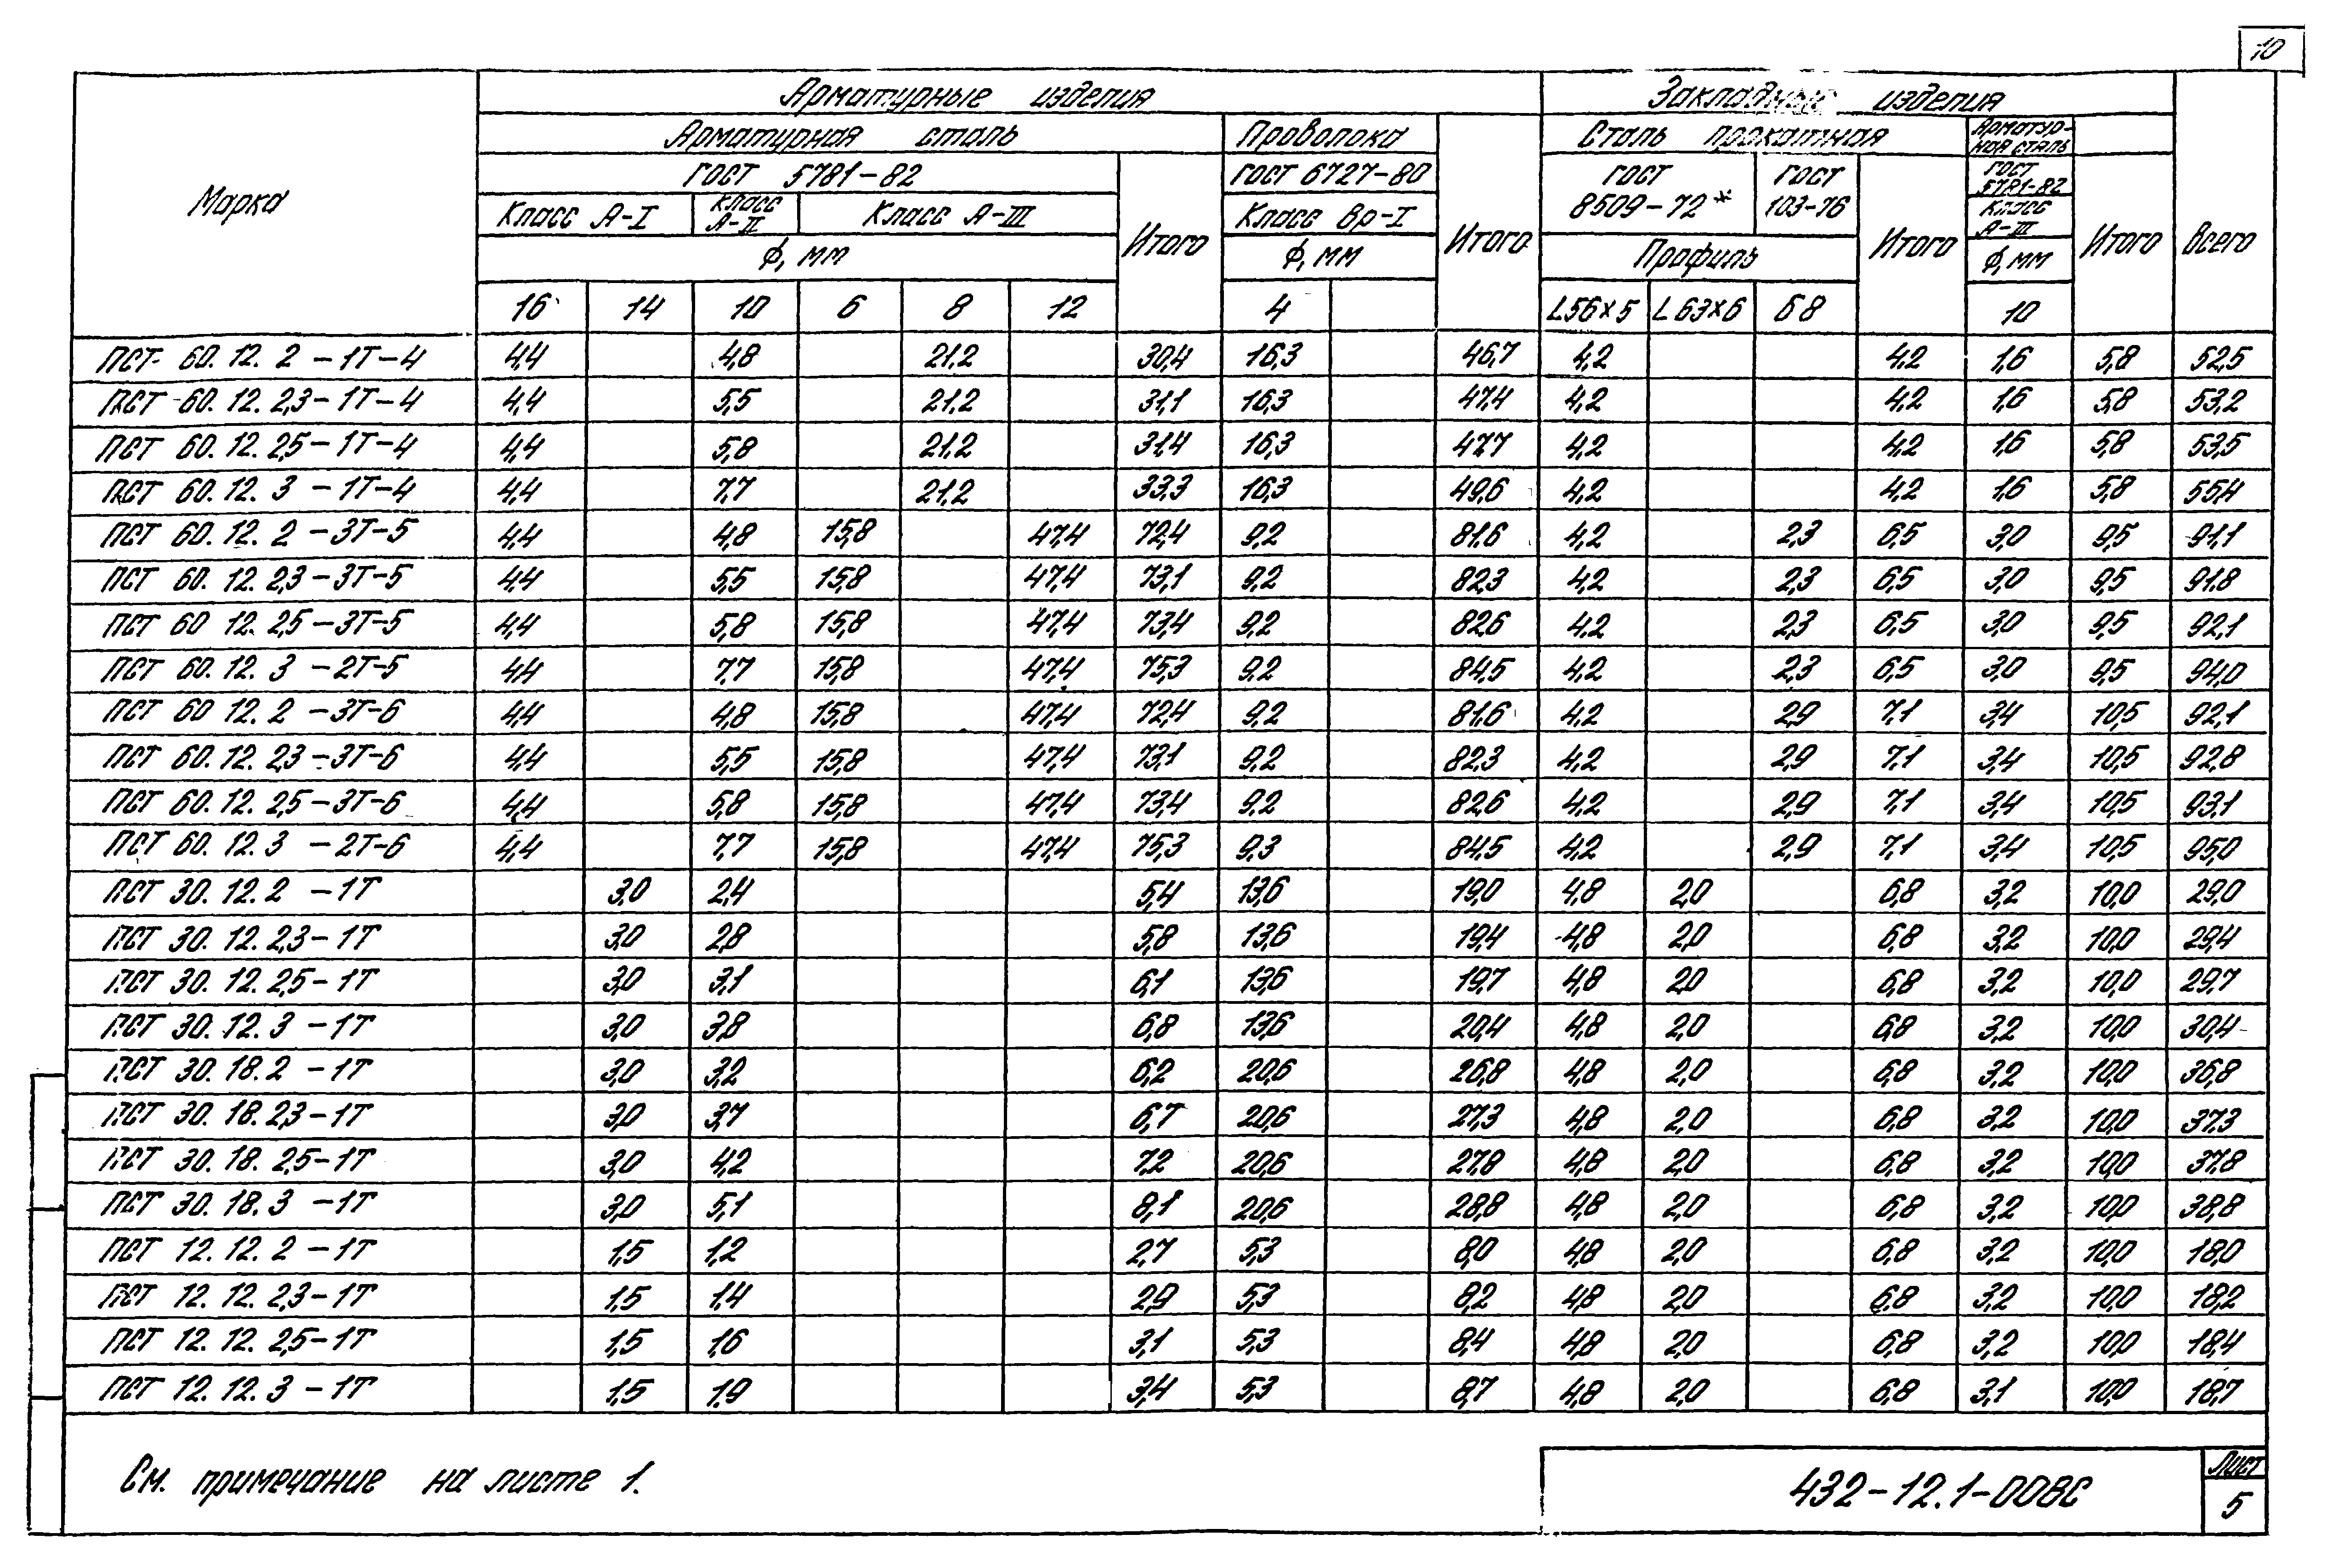 10
Марка
Арматурные изделия
Закладные изделия
Всего
Арматурная сталь
Проволока
Итого
Сталь прокатная
Арматур-
ная сталь
Итого
ГОСТ 5781-82
Итого
ГОСТ 6727-80
ГОСТ
8509-72*
ГОСТ
103-76
Итого
ГОСТ
5781-82
Класс А-I
Класс
А-II
Класс А-III
Класс Вр-I
Класс
А-III
Ф, мм
Ф, мм
Профиль
Ф, мм
16 14 10 6 8 12 4 L56×5 L63×6 δ8 10
ПСТ 60.12.2 -1Т-4 4,4 4,8 21,2 30,4 16,3 46,7 4,2 4,2 1,6 5,8 52,5
ПСТ 60.12.2,3-1Т-4 4,4 5,5 21,2 31,1 16,3 47,4 4,2 4,2 1,6 5,8 53,2
ПСТ 60.12.2,5-1Т-4 4,4 5,8 21,2 31,4 16,3 47,7 4,2 4,2 1,6 5,8 53,5
ПСТ 60.12.3 -1Т-4 4,4 7,7 21,2 33,3 16,3 49,6 4,2 4,2 1,6 5,8 55,4
ПСТ 60.12.2 -3Т-5 4,4 4,8 15,8 47,4 72,4 9,2 81,6 4,2 2,3 6,5 3,0 9,5 91,1
ПСТ 60.12.2,3-3Т-5 4,4 5,5 15,8 47,4 73,1 9,2 82,3 4,2 2,3 6,5 3,0 9,5 91,8
ПСТ 60 12.2,5-3Т-5 4,4 5,8 15,8 47,4 73,4 9,2 82,6 4,2 2,3 6,5 3,0 9,5 92,1
ПСТ 60.12.3 -2Т-5 4,4 7,7 15,8 47,4 75,3 9,2 84,5 4,2 2,3 6,5 3,0 9,5 94,0
ПСТ 60 12.2 -3Т-6 4,4 4,8 15,8 47,4 72,4 9,2 81,6 4,2 2,9 7,1 3,4 10,5 92,1
ПСТ 60.12.2,3-3Т-6 4,4 5,5 15,8 47,4 73,1 9,2 82,3 4,2 2,9 7,1 3,4 10,5 92,8
ПСТ 60.12.2,5-3Т-6 4,4 5,8 15,8 47,4 73,4 9,2 82,6 4,2 2,9 7,1 3,4 10,5 93,1
ПСТ 60.12.3 -2Т-6 4,4 7,7 15,8 47,4 75,3 9,3 84,5 4,2 2,9 7,1 3,4 10,5 95,0
ПСТ 30.12.2 -1Т 3,0 2,4 5,4 13,6 19,0 4,8 2,0 6,8 3,2 10,0 29,0
ПСТ 30.12.2,3-1Т 3,0 2,8 5,8 13,6 19,4 4,8 2,0 6,8 3,2 10,0 29,4
ПСТ 30.12.2,5-1Т 3,0 3,1 6,1 13,6 19,7 4,8 2,0 6,8 3,2 10,0 29,7
ПСТ 30.12.3 -1Т 3,0 3,8 6,8 13,6 20,4 4,8 2,0 6,8 3,2 10,0 30,4
ПСТ 30.18.2 -1Т 3,0 3,2 6,2 20,6 26,8 4,8 2,0 6,8 3,2 10,0 36,8
ПСТ 30.18.2,3-1Т 3,0 3,7 6,7 20,6 27,3 4,8 2,0 6,8 3,2 10,0 37,3
ПСТ 30.18.2,5-1Т 3,0 4,2 7,2 20,6 27,8 4,8 2,0 6,8 3,2 10,0 37,8
ПСТ 30.18.3 -1Т 3,0 5,1 8,1 20,6 28,8 4,8 2,0 6,8 3,2 10,0 38,8
ПСТ 12.12.2 -1Т 1,5 1,2 2,7 5,3 8,0 4,8 2,0 6,8 3,2 10,0 18,0
ПСТ 12.12.2,3-1Т 1,5 1,4 2,9 5,3 8,2 4,8 2,0 6,8 3,2 10,0 18,2
ПСТ 12.12.2,5-1Т 1,5 1,6 3,1 5,3 8,4 4,8 2,0 6,8 3,2 10,0 18,4
ПСТ 12.12.3 -1Т 1,5 1,9 3,4 5,3 8,7 4,8 2,0 6,8 3,1 10,0 18,7
См. примечание на листе 1.
432-12.1-00ВС
Лист
5